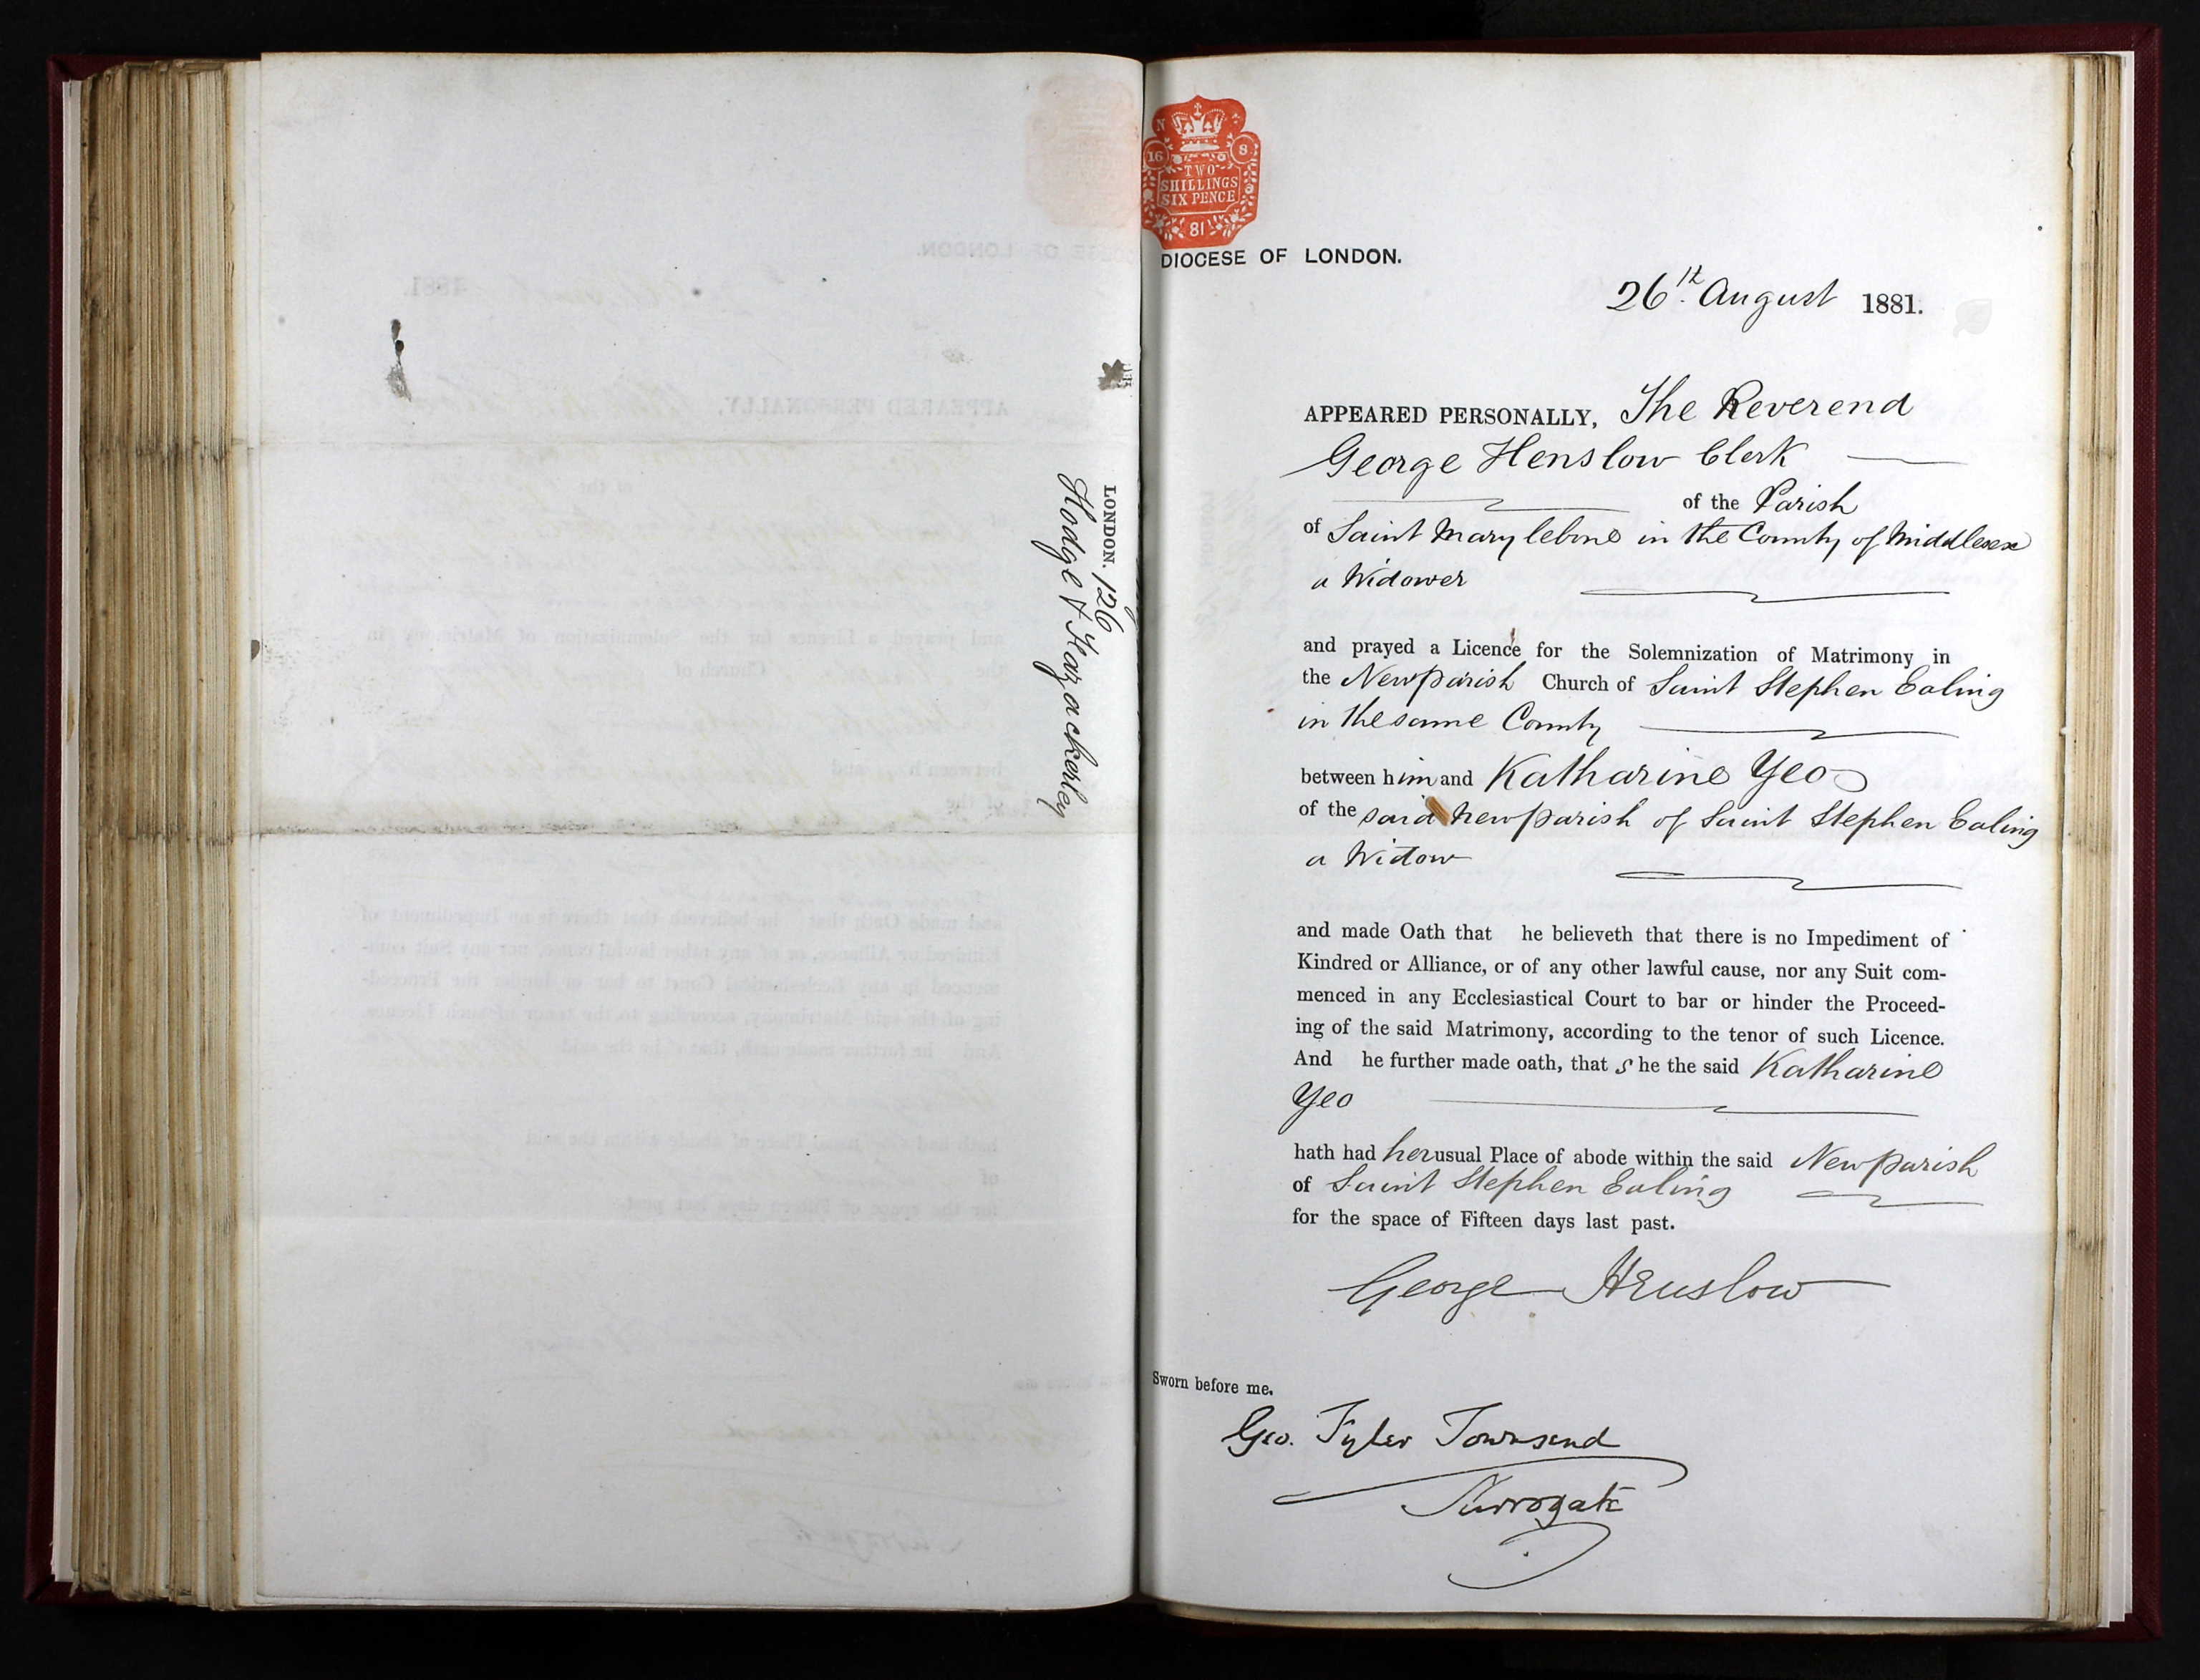 LONDON. 126
Hodge & Hazackerley
N
16 8
TWO
SHILLINGS
SIX PENCE
81
DIOCESE OF LONDON.
26th. August 1881.
APPEARED PERSONALLY, The Reverend
George Henslow Clerk
of the Parish
of Saint Marylebone in the County of Middlesex
a Widower
and prayed a Licence for the Solemnization of Matrimony in
the New Parish Church of Saint Stephen Ealing
in the same County
between him and Katharine Yeo
of the said new parish of Saint Stephen Ealing
a Widow
and made Oath that he believeth that there is no Impediment of
Kindred or Alliance, or of any other lawful cause, nor any Suit com-
menced in any Ecclesiastical Court to bar or hinder the Proceed-
ing of the said Matrimony, according to the tenor of such Licence.
And he further made oath, that she the said Katharine
Yeo
hath had her usual Place of abode within the said New Parish
of Saint Stephen Ealing
for the space of Fifteen days last past.
George Henslow
Sworn before me.
Geo. Tyler Townsend
Surrogate